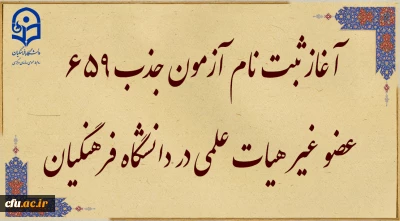 دانشگاه فرهنگیان
آغاز ثبت نام آزمون جذب ۶۵۹
عضو غیر هیات علمی در دانشگاه فرهنگیان
cfu.ac.ir